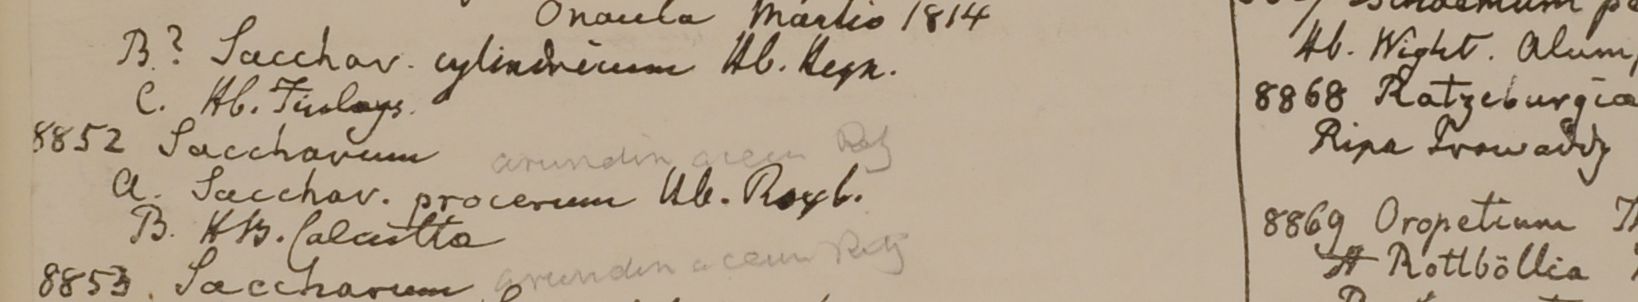 Martio 1814
B? Sacchar. cylindricum Hb. Heyn.
C. Hb. Finlays.
8852 Saccharum arundinaceum Retz
a. Sacchar. procerum Hb. Roxb.
B. HB. Calcutta
8853. Saccharum arundinaceum Retz
Hb. Wight.
8868 Ratzeburgia
Ripa Irawaddy
8869 Oropetium
Rottböllia